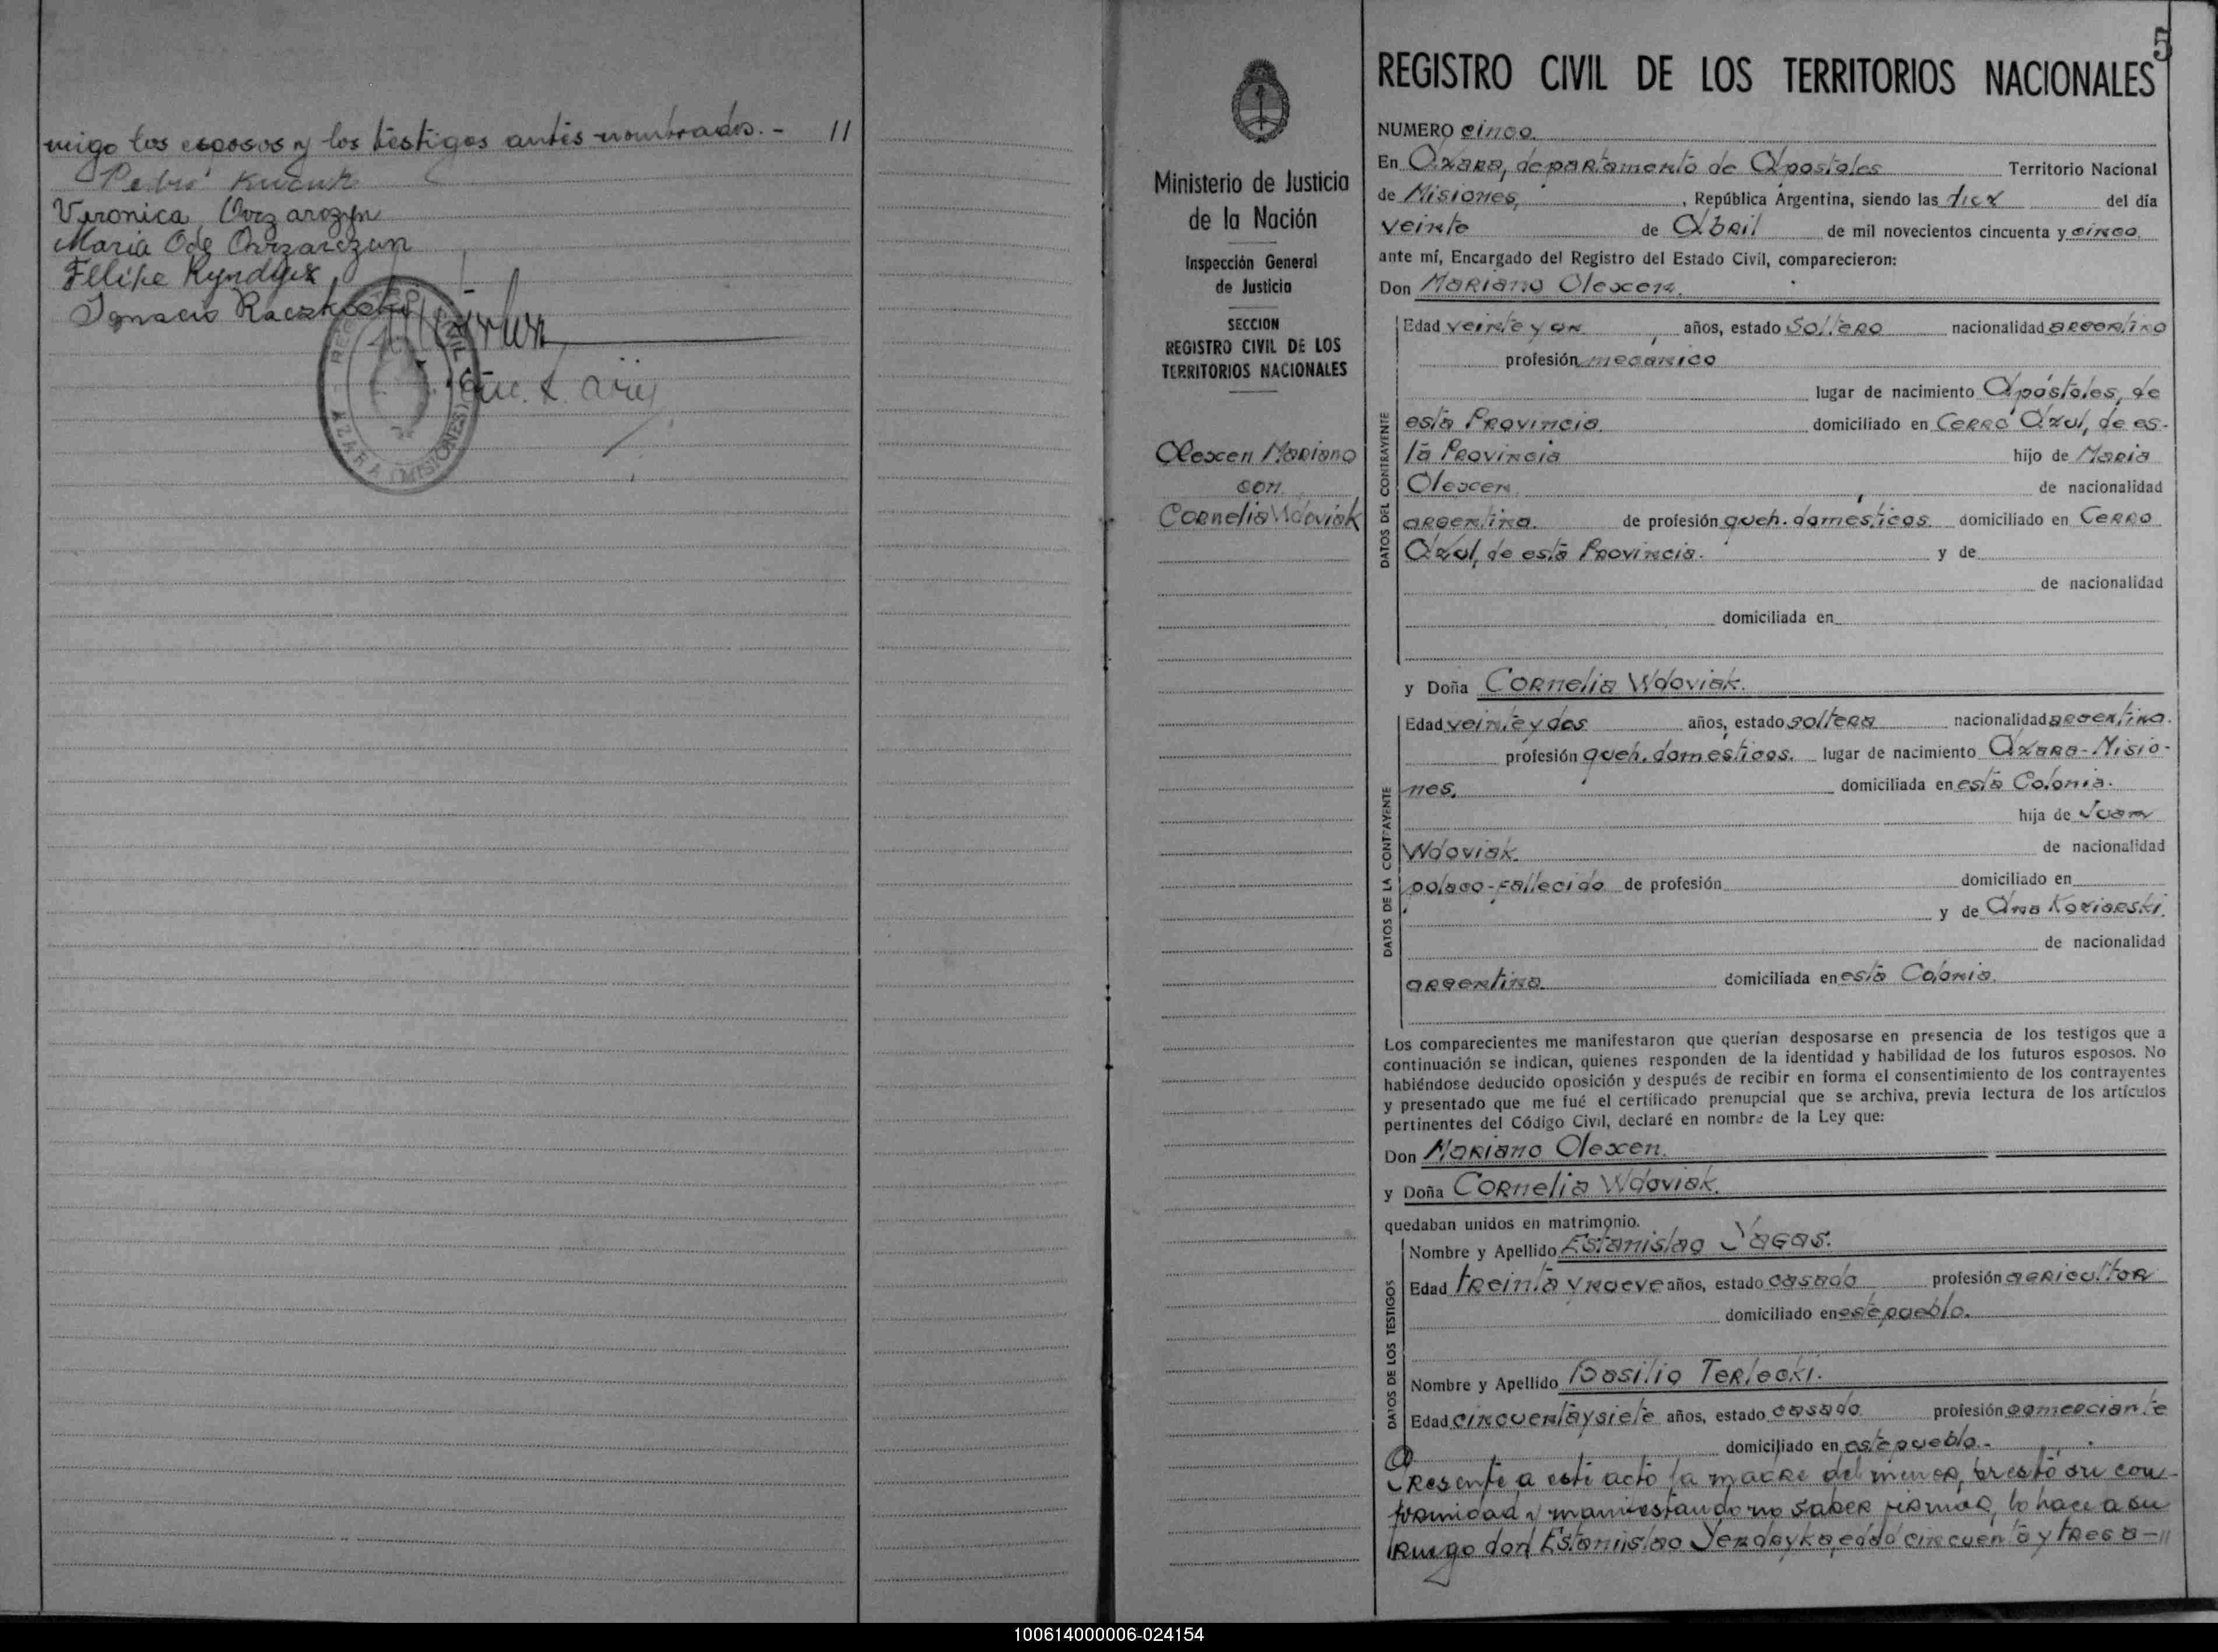 migo los esposos y los testigos antes nombrados.- 11
Pedro Kuzuk
Veronica
Maria Ode
Felipe
Ignacio
REGISTRO CIVIL
AZARA (MISIONES)
5
Ministerio de Justicia
de la Nación
Inspección General
de Justicia
SECCION
REGISTRO CIVIL DE LOS
TERRITORIOS NACIONALES
Olexen Mariano
con
Cornelia Wdoviak
REGISTRO CIVIL DE LOS TERRITORIOS NACIONALES
NUMERO cinco.
En Azara, departamento de Apostoles Territorio Nacional
de Misiones, , República Argentina, siendo las diez del día
veinte de Abril de mil novecientos cincuenta y cinco.
ante mí, Encargado del Registro del Estado Civil, comparecieron:
Don Mariano Olexen.
DATOS DEL CONTRAYENTE
Edad veinte y un años, estado soltero nacionalidad argentino
profesión mecánico
lugar de nacimiento Apóstoles, de
esta Provincia. domiciliado en Cerro Azul, de es-
ta Provincia hijo de Maria
Olexen. de nacionalidad
argentina. de profesión queh. domésticos domiciliado en Cerro
Azul, de esta Provincia. y de
de nacionalidad
domiciliada en
y Doña Cornelia Wdoviak.
DATOS DE LA CONTRAYENTE
Edad veinte y dos años, estado soltera nacionalidad argentina.
profesión queh. domesticos. lugar de nacimiento Azara-Misio-
nes. domiciliada en esta Colonia.
hija de Juan
Wdoviak. de nacionalidad
polaco-fallecido de profesión domiciliado en
y de Ana Koziarski.
de nacionalidad
argentina domiciliada en esta Colonia.
Los comparecientes me manifestaron que querían desposarse en presencia de los testigos que a
continuación se indican, quienes responden de la identidad y habilidad de los futuros esposos. No
habiéndose deducido oposición y después de recibir en forma el consentimiento de los contrayentes
y presentado que me fué el certificado prenupcial que se archiva, previa lectura de los artículos
pertinentes del Código Civil, declaré en nombre de la Ley que:
Don Mariano Olexen.
y Doña Cornelia Wdoviak.
quedaban unidos en matrimonio.
DATOS DE LOS TESTIGOS
Nombre y Apellido Estanislao Yagas.
Edad treinta y nueve años, estado casado profesión agricultor
domiciliado en este pueblo.
Nombre y Apellido Basilio Terlecki.
Edad cincuenta y siete años, estado casado profesión comerciante
domiciliado en este pueblo.-
Presente a este acto la madre del menor, prestó su con-
formidad y manifestando no saber firmar, lo hace a su
ruego don Estanislao Yendryka, edad cincuenta y tres a-11
100614000006-024154